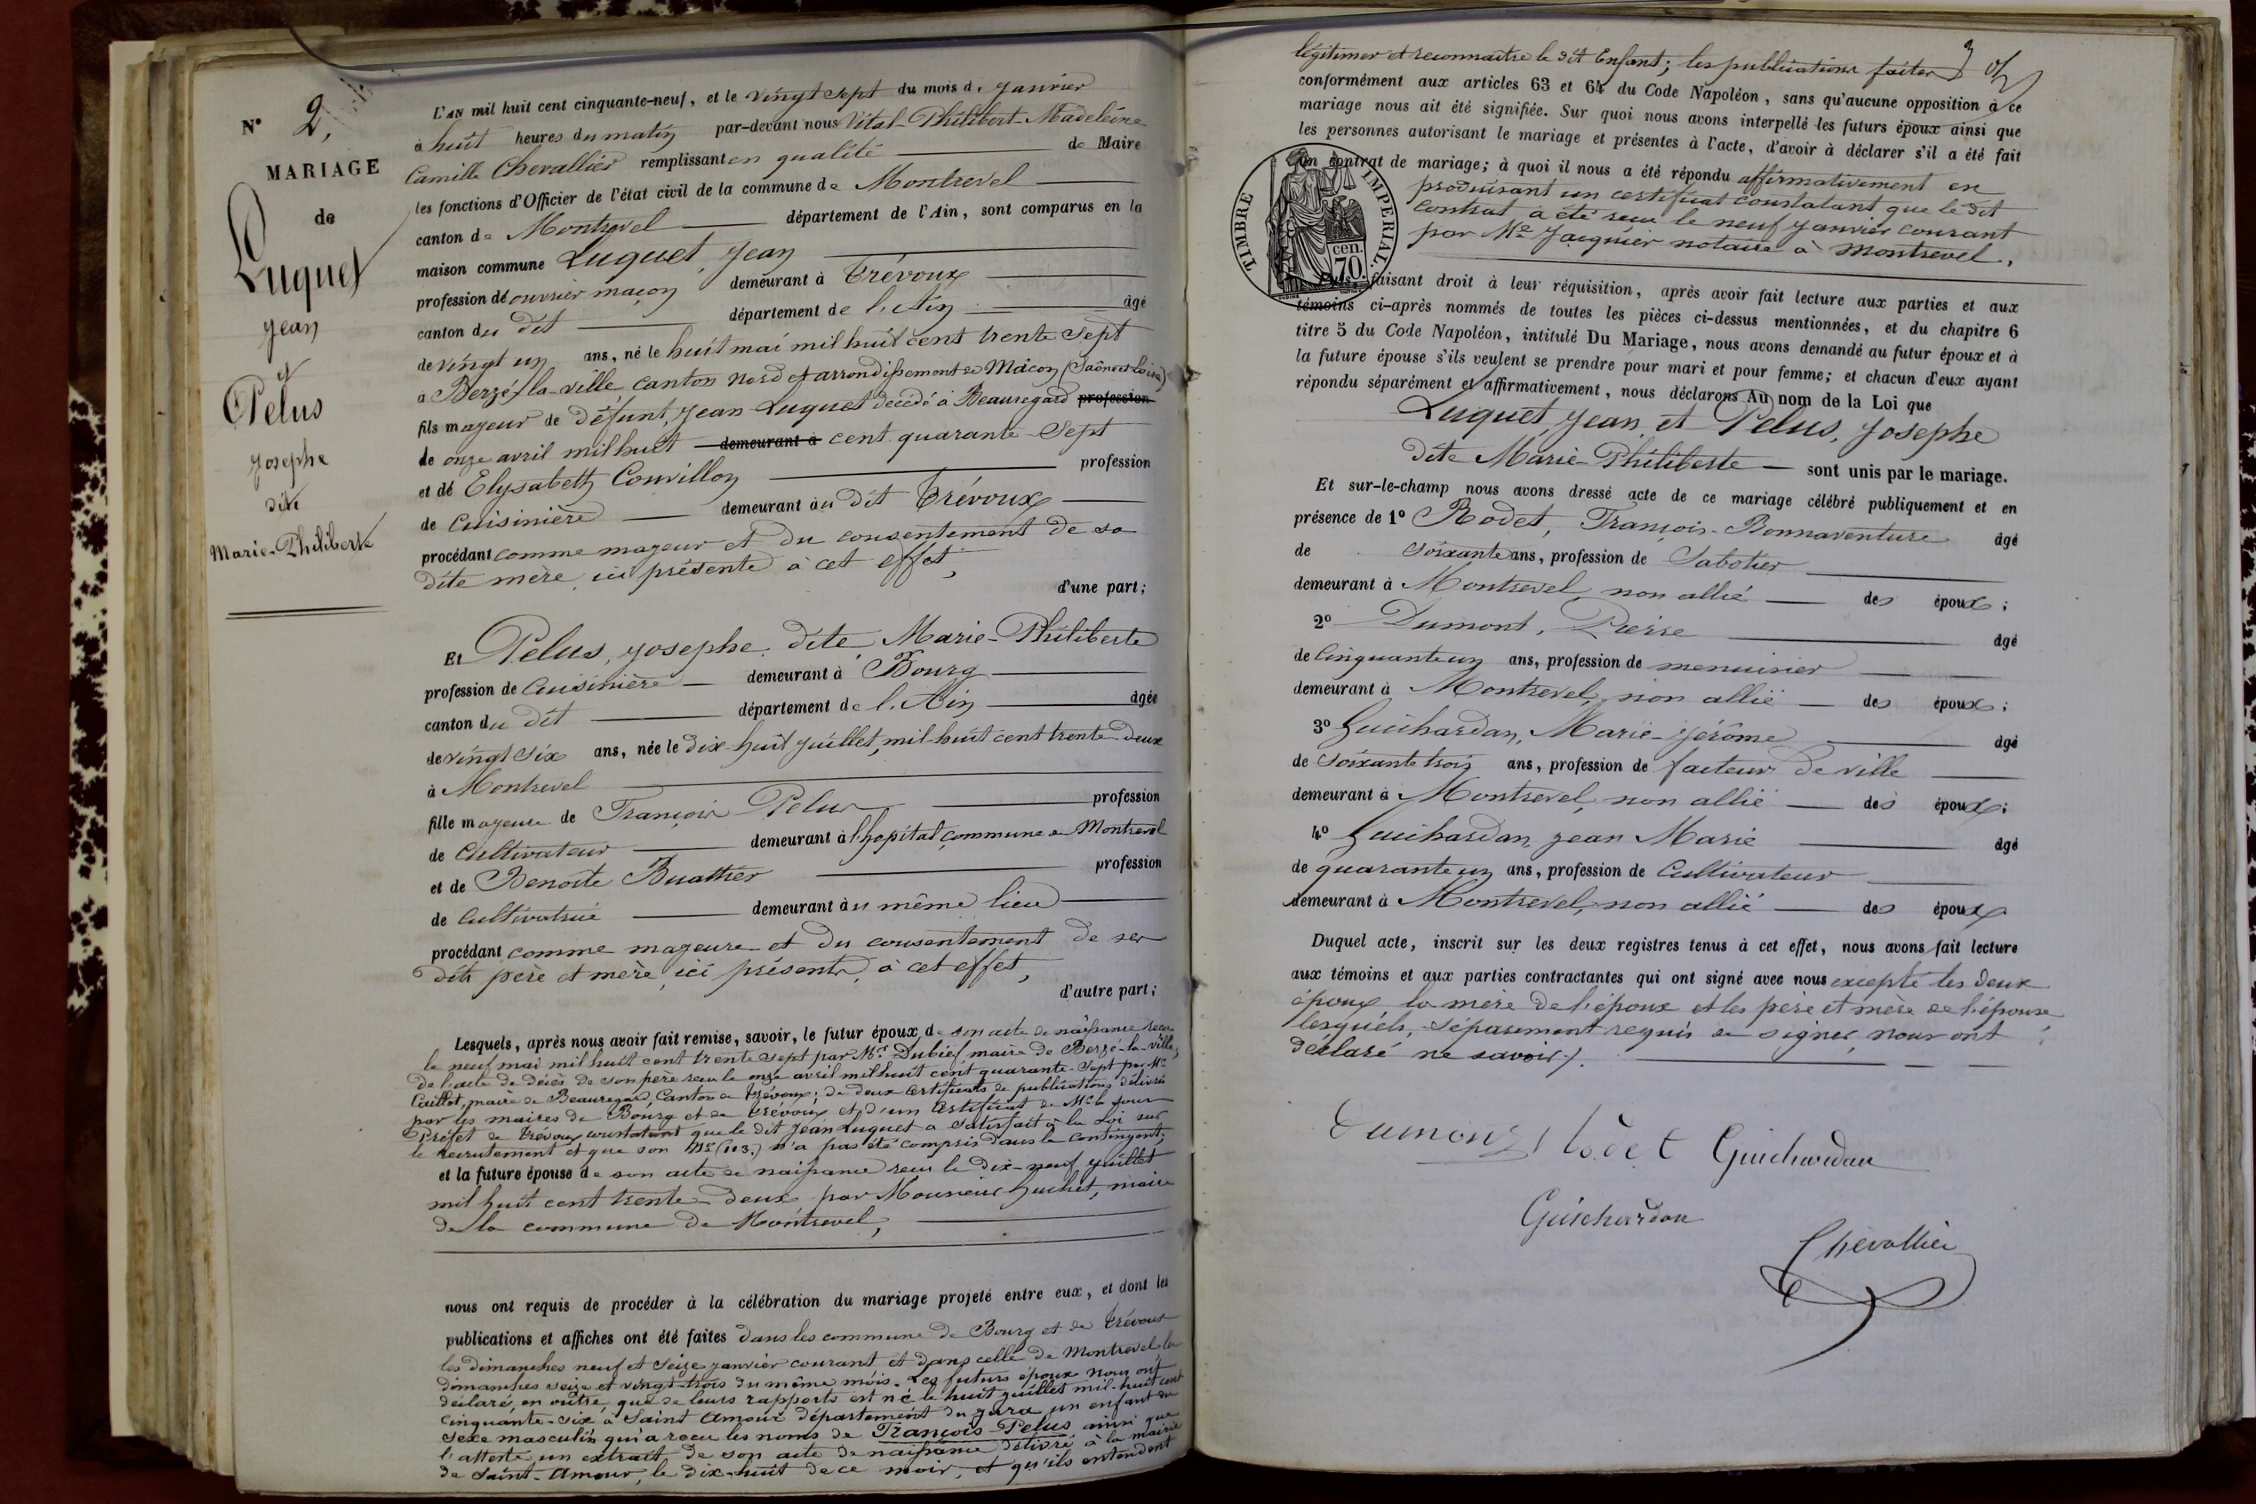 N° 2,
MARIAGE
de
Luquet
Jean
et
Pelus
Josephe
dite
Marie-Philiberte
L'AN mil huit cent cinquante-neuf, et le vingt sept du mois de Janvier
à huit heures du matin par-devant nous Vital-Philibert-Madeleine
Camille Chevallier remplissant en qualité de Maire
les fonctions d'Officier de l'état civil de la commune de Montrevel
canton de Montrevel département de l'Ain, sont comparus en la
maison commune Luquet, Jean
profession de ouvrier maçon demeurant à Trévoux
canton du dit département de l'Ain âgé
de vingt un ans, né le huit mai mil huit cent trente sept
à Berzé-la-ville, canton nord et arrondissement de Mâcon (Saône et Loire)
fils majeur de défunt, Jean Luquet décédé à Beauregard profession
de onze avril mil huit demeurant à cent quarante-Sept
et de Elysabeth Couvillon profession
de Cuisinière demeurant au dit Trévoux
procédant comme majeur et du consentement de sa
dite mère ici présente à cet effet,
d'une part;
Et Pelus, Josephe, dite Marie-Philiberte
profession de Cuisinière demeurant à Bourg
canton du dit département de l'Ain âgée
de vingt six ans, née le dix-huit juillet, mil-huit cent trente-deux
à Montrevel
fille majeure de François Pelus profession
de Cultivateur demeurant à l'hopital, commune de Montrevel
et de Benoite Buathier profession
de Cultivatrice demeurant au même lieu
procédant comme majeure et du consentement de ses
dits père et mère ici présents, à cet effet,
d'autre part;
Lesquels, après nous avoir fait remise, savoir, le futur époux, de son acte de naissance recu
le neuf mai mil huit cent trente sept par Mr. Dubief, maire de Berzé-la-ville,
de l'acte de décès de son père recu le onze avril mil huit cent quarante-Sept par Mr.
Caillot, maire de Beauregard, Canton de Trévoux; de deux Certificats de publications délivrés
par les maires de Bourg et de Trévoux et d'un Certificat de Mr. le Sous
Préfet de Trévoux constatant que le dit Jean Luquet a satisfait à la Loi sur
le recrutement et que son No. (113.) n'a pas été compris dans le contingent;
et la future épouse de son acte de naissance recu le Dix-neuf juillet
mil huit cent trente-deux par Monsieur Guchet, maire
de la commune de Montrevel,
nous ont requis de procéder à la célébration du mariage projeté entre eux, et dont les
publications et affiches ont été faites dans les commune de Bourg et de Trévoux
les dimanches neuf et seize janvier courant et dans celle de Montrevel les
dimanches seize et vingt-trois du même mois. Les futurs époux nous ont
déclaré, en outre, que de leurs rapports est né le huit juillet mil-huit cent
cinquante-six à Saint Amour département du Jura un enfant du
sexe masculin qui a recu les noms de François-Pelus ainsi que
l'atteste un extrait de son acte de naissance délivré à la mairie
de Saint-Amour, le dix-huit de ce mois, et qu'ils entendent
légitimer et reconnaitre le dit Enfant; les publications faites
conformément aux articles 63 et 64 du Code Napoléon, sans qu'aucune opposition à ce
mariage nous ait été signifiée. Sur quoi nous avons interpellé les futurs époux ainsi que
les personnes autorisant le mariage et présentes à l'acte, d'avoir à déclarer s'il a été fait
un contrat de mariage; à quoi il nous a été répondu affirmativement en
produisant un certificat constatant que le dit
contrat a été recu le neuf Janvier courant
par Me Jacquier notaire à Montrevel.
TIMBRE IMPERIAL.
70 cen.
Puis, faisant droit à leur réquisition, après avoir fait lecture aux parties et aux
témoins ci-après nommés de toutes les pièces ci-dessus mentionnées, et du chapitre 6
titre 5 du Code Napoléon, intitulé Du Mariage, nous avons demandé au futur époux et à
la future épouse s'ils veulent se prendre pour mari et pour femme; et chacun d'eux ayant
répondu séparément et affirmativement, nous déclarons Au nom de la Loi que
Luquet, Jean et Pelus, Josephe
dite Marie-Philiberte sont unis par le mariage.
Et sur-le-champ nous avons dressé acte de ce mariage célébré publiquement et en
présence de 1° Rodet, François-Bonnaventure âgé
de soixante ans, profession de Sabotier
demeurant à Montrevel, non allié des époux;
2° Dumont, Pierre âgé
de Cinquante un ans, profession de menuisier
demeurant à Montrevel, non allié des époux;
3° Guichardan, Marie-Jérôme âgé
de soixante trois ans, profession de facteur de ville
demeurant à Montrevel, non allié des époux;
4° Guichardan Jean Marie âgé
de quarante un ans, profession de Cultivateur
demeurant à Montrevel, non allié des époux
Duquel acte, inscrit sur les deux registres tenus à cet effet, nous avons fait lecture
aux témoins et aux parties contractantes qui ont signé avec nous excepté les deux
époux la mère de l'époux et les père et mère de l'épouse
lesquels, séparement requis de signer, nous ont
déclaré ne savoir.
Dumont Rodet Guichardan
Guichardan
Chevallier